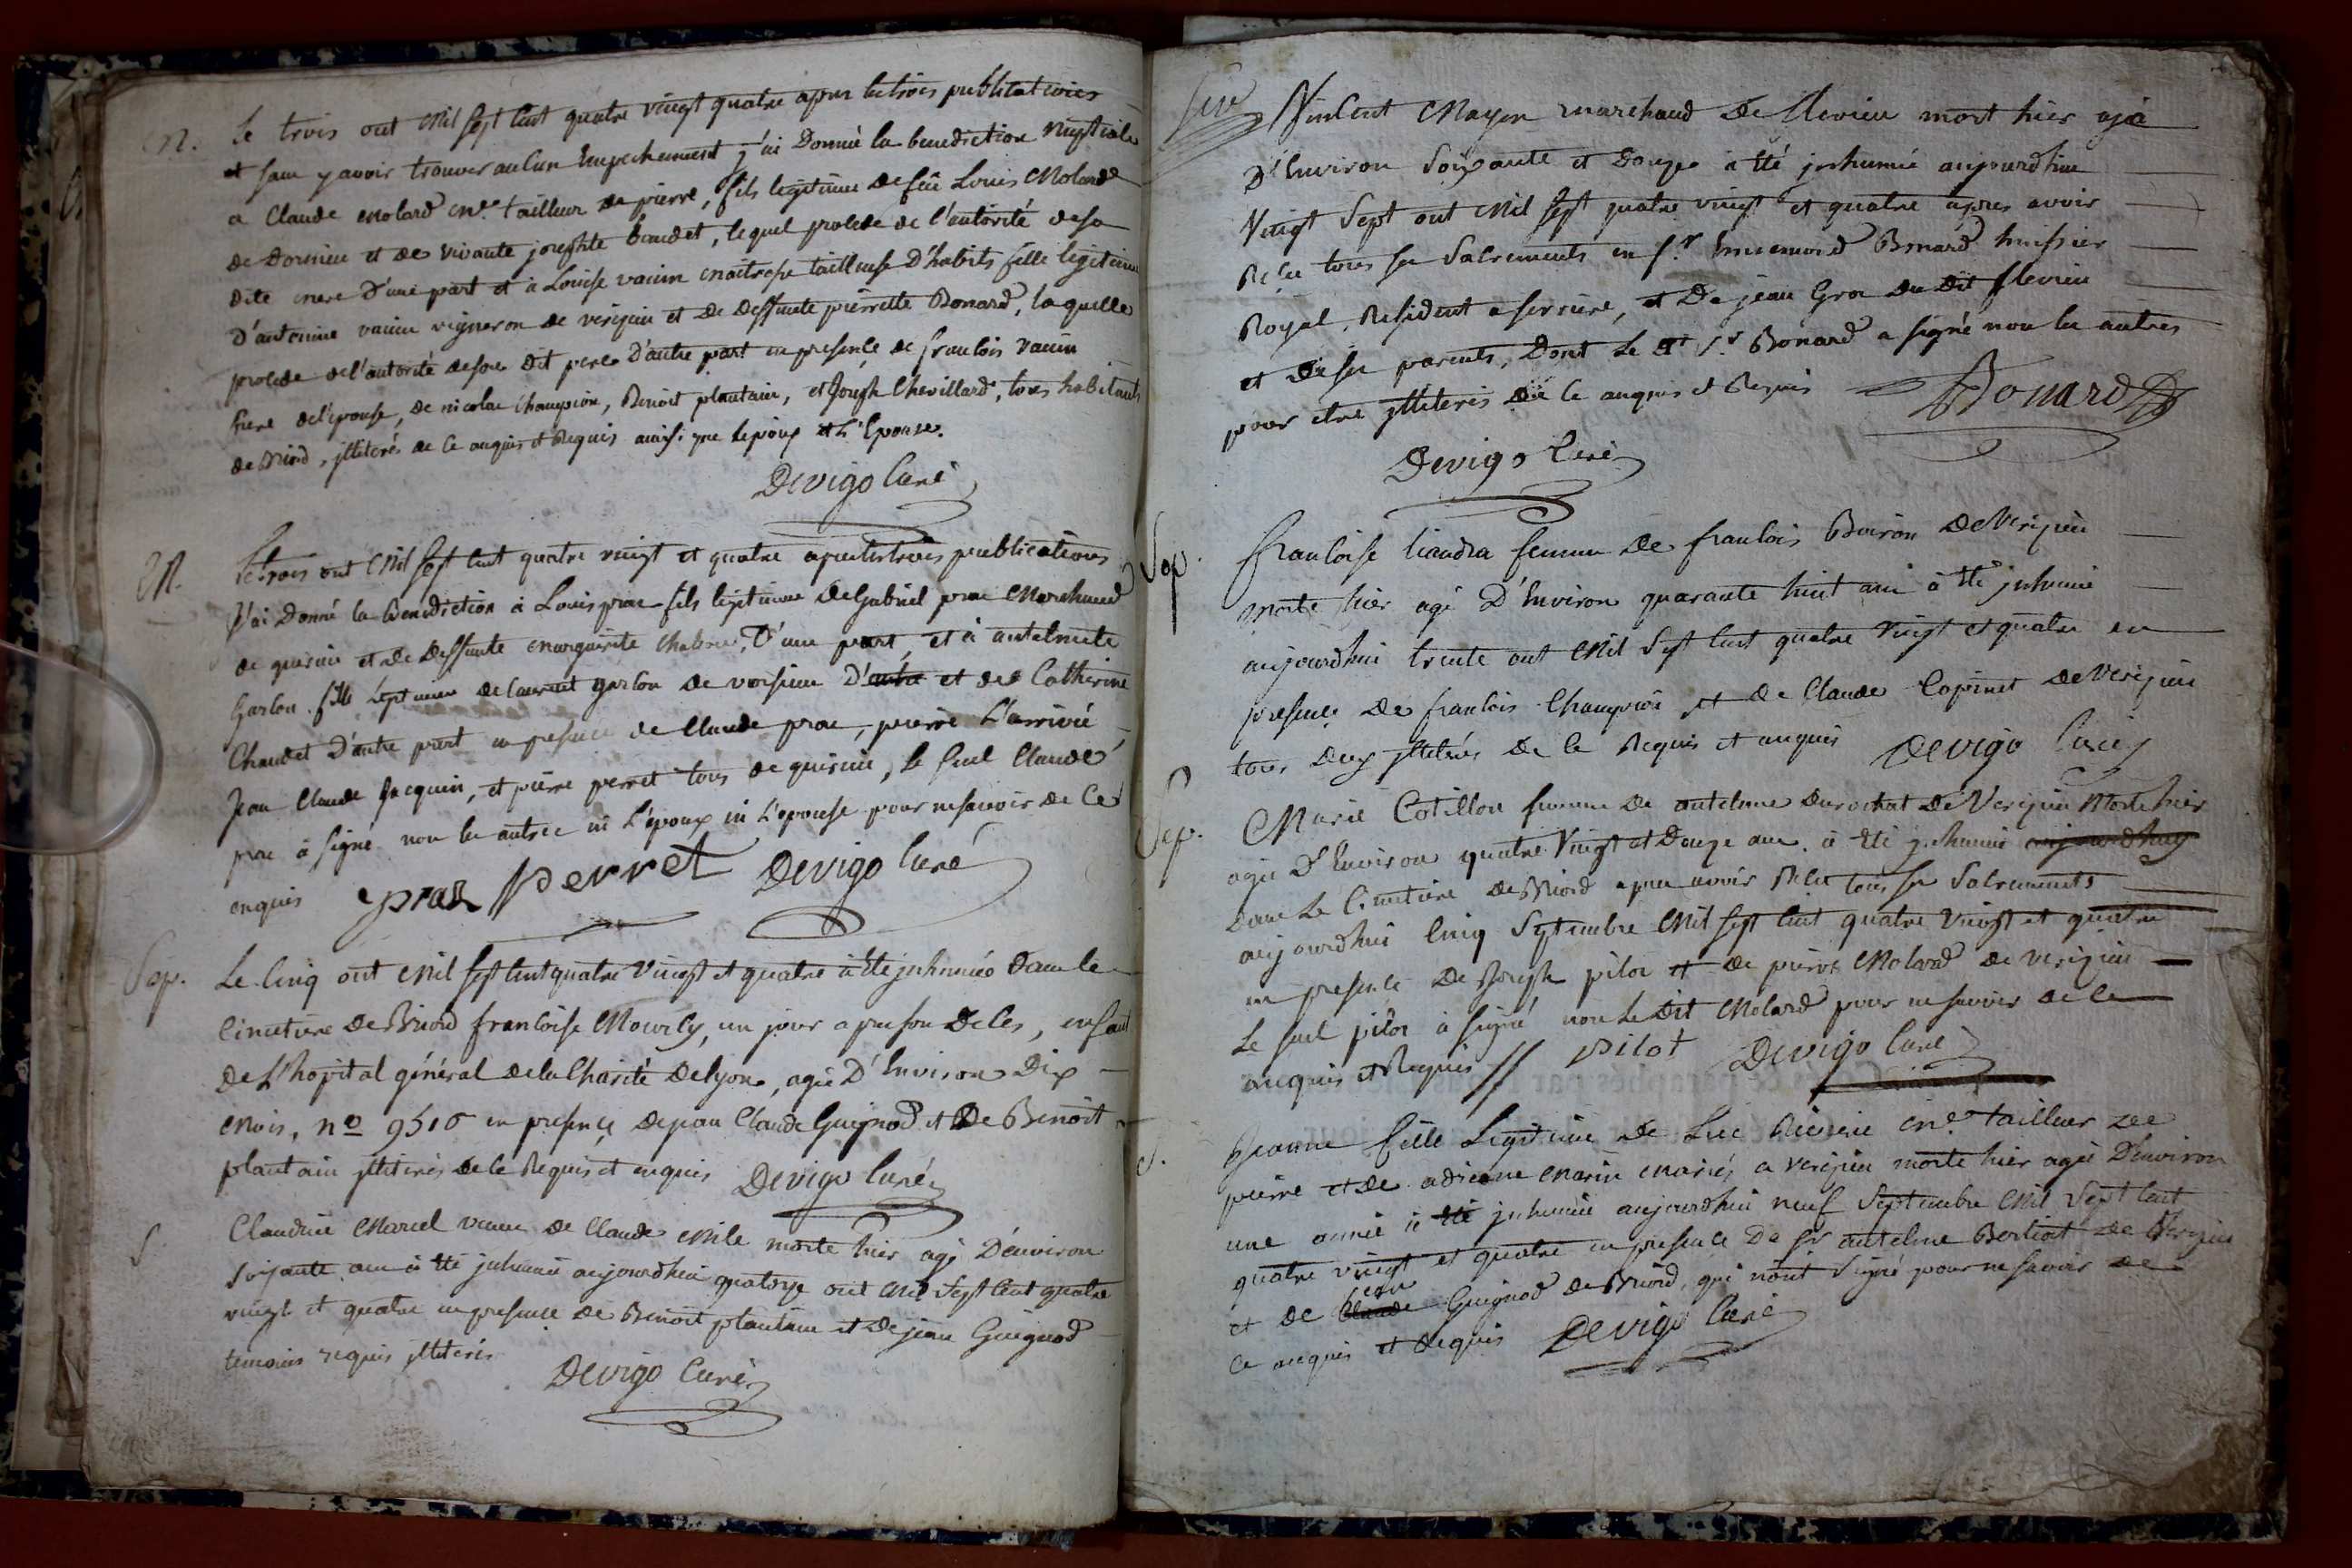 m. Le trois out mil sept cent quatre vingt quatre apres les trois publications
et sans y avoir trouver aucun Empechement j'ai Donné la benediction nuptiale
a Claude molard me. tailleur de pierre, fils legitime de feu Louis Molard
de Dornieu et de vivante josephte baudet, lequel procede de l'autorité de sa
dite mere D'une part et à Louise vacim maitresse tailleuse D'habits fille legitime
D'antoine vacim vigneron de verizieu et de Deffunte pierrette Bonard, laquelle
procede de l'autorité de son dit pere D'autre part en presence de francois vacim
frere de l'epouse, de nicolas champion, Benoit plantain, et Joseph Chevillard, tous habitants
de Briord, illiterés de ce enquis et Requis ainsi que l'epoux et L'Epouse.
Devigo Curé
M. Le trois out mil sept cent quatre vingt et quatre apres les trois publications
J'ai Donné la benediction à Louis pras fils legitime de Gabriel pras marchand
de quirieu et de deffunte marguerite D'une part, et à antelmete
Garlon fille legitime de laurent garlon de vorsieu D'autre et de Catherine
Chaudet D'autre part en presence de Claude pras, pierre L'arrivé
Jean Claude Jacquin, et pierre perret tous de quirieu, le seul Claude
pras à signé non les autres ni L'époux ni L'epouse pour ne savoir de ce
enquis pras Perret Devigo Curé
Sep. Le cinq out mil sept cent quatre vingt et quatre à été inhumée dans le
cimetiere de Briord francoise Mourly, un jour apres son deces, enfant
de L'hopital général de la Charité de lyon, agée D'Environ Dix
mois, no 9510 en presence de jean Claude Guignod et De Benoit
plantain illiterés de ce Requis et enquis Devigo Curé
S Claudine Marcel veuve de Claude mile morte hier agé D'environ
soixante ans à été inhumée aujourdhui quatorze out mil sept cent quatre
vingt et quatre en presence de Benoit plantain et de jean Guignod
temoins requis illiterés
Devigo Curé
Vincent Mayen marchand de flevieu mort hier agé
D'Environ soixante et douze à été inhumé aujourdhui
Vingt sept out mil sept quatre vingt et quatre apres avoir
Reçu tous ses Sacrements en sr. Ennemond Bonard huissier
Royal, Resident a serriere, et De jean Gros du Dit flevieu
et de ses parents, Dont le dt sr. Bonard a signé non les autres
pour etre illiterés de ce enquis et Requis Bonard
Devigo Curé
Sep. francoise liaudra femme de francois Buiron de Verizieu
morte hier agé D'Environ quarante huit ans à été inhumé
aujourdhui trente out mil sept cent quatre vingt et quatre en
presence de francois Champion et de Claude Copinet de verizieu
tous deux illiterés de ce Requis et enquis Devigo Curé
Sep. Marie Cotillon femme de antelme Durochat de Verizieu morte hier
agée D'Environ quatre vingt et douze ans à été inhumée aujourdhuy
dans le Cimetiere de Briord apres avoir Recu tous ses Sacrements
aujourdhui cinq Septembre mil sept cent quatre vingt et quatre
en presence de Joseph pilot et de pierre Molard de verizieu
le seul pilot à signé non le dit Molard pour ne savoir de ce
enquis et Requis // pilot Devigo Curé
S. Jeanne fille Legitime de Luc me. tailleur de
pierre et de adrienne marin mariés a verizieu morte hier agée D'environ
une année à été inhumée aujourdhui neuf Septembre mil Sept cent
quatre vingt et quatre en presence De sr antelme Bertiat de Verizieu
et de Claude jean Guignod de Briord, qui n'ont signé pour ne savoir de
ce enquis et Requis Devigo Curé